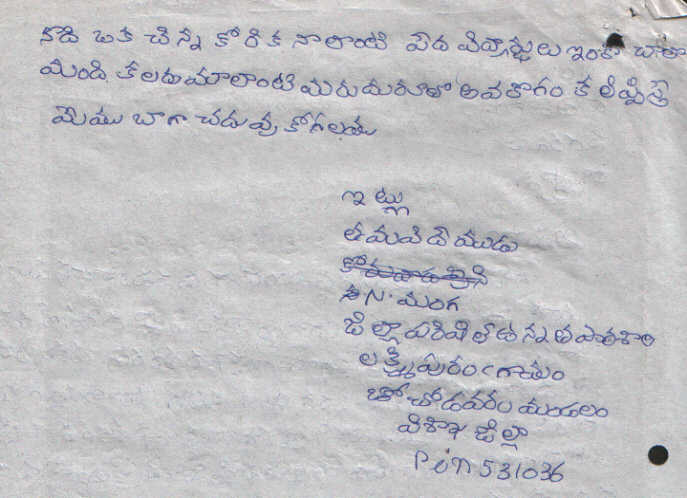 నాది ఒక చిన్న కోరిక నాలాంటి పేద విద్యార్థులు ఇంకా చాలా
మంది కలరు మాలాంటి మరు అవకాశం కల్పిస్తే
మేము బాగా చదువు కోగలము
ఇట్లు
తమ విదేముడు
N. మంగ
జిల్లా పరిషత్ ఉన్నత పాఠశాల
లక్ష్మీపురం గ్రామం
చోడవరం మండలం
విశాఖ జిల్లా
Pin 531036